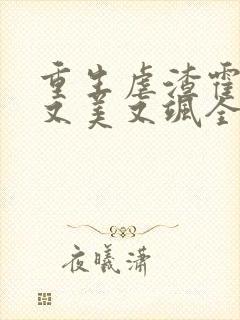 重生虐渣霍
又美又飒全
夜曦潇